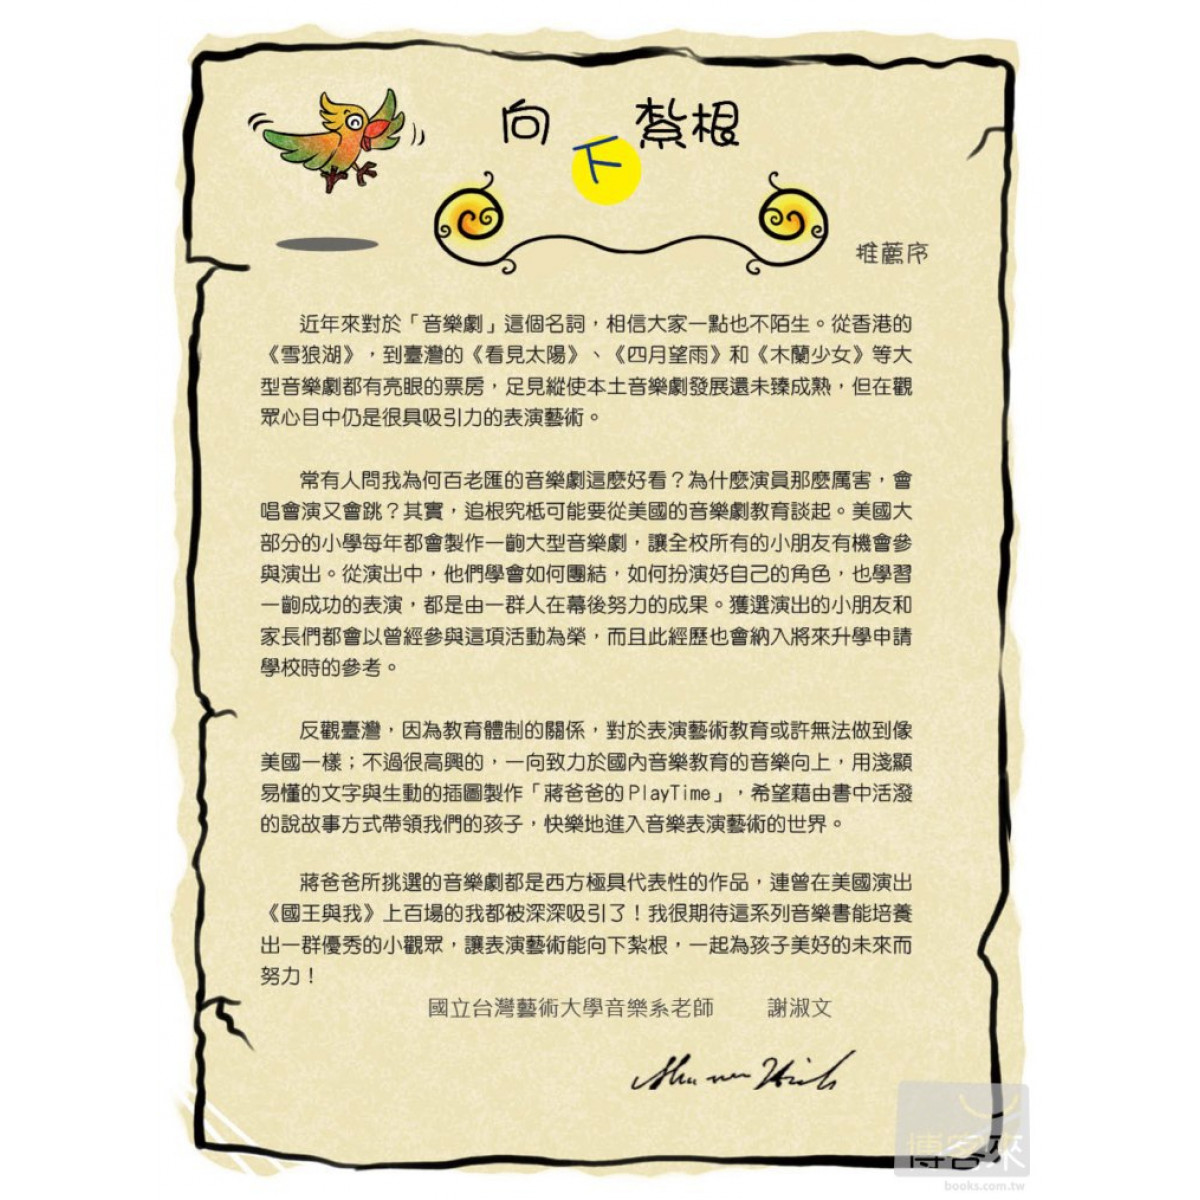 向下紮根
推薦序
近年來對於「音樂劇」這個名詞，相信大家一點也不陌生。從香港的
《雪狼湖》，到臺灣的《看見太陽》、《四月望雨》和《木蘭少女》等大
型音樂劇都有亮眼的票房，足見縱使本土音樂劇發展還未臻成熟，但在觀
眾心目中仍是很具吸引力的表演藝術。
常有人問我為何百老匯的音樂劇這麼好看？為什麼演員那麼厲害，會
唱會演又會跳？其實，追根究柢可能要從美國的音樂劇教育談起。美國大
部分的小學每年都會製作一齣大型音樂劇，讓全校所有的小朋友有機會參
與演出。從演出中，他們學會如何團結，如何扮演好自己的角色，也學習
一齣成功的表演，都是由一群人在幕後努力的成果。獲選演出的小朋友和
家長們都會以曾經參與這項活動為榮，而且此經歷也會納入將來升學申請
學校時的參考。
反觀臺灣，因為教育體制的關係，對於表演藝術教育或許無法做到像
美國一樣；不過很高興的，一向致力於國內音樂教育的音樂向上，用淺顯
易懂的文字與生動的插圖製作「蔣爸爸的PlayTime」，希望藉由書中活潑
的說故事方式帶領我們的孩子，快樂地進入音樂表演藝術的世界。
蔣爸爸所挑選的音樂劇都是西方極具代表性的作品，連曾在美國演出
《國王與我》上百場的我都被深深吸引了！我很期待這系列音樂書能培養
出一群優秀的小觀眾，讓表演藝術能向下紮根，一起為孩子美好的未來而
努力！
國立台灣藝術大學音樂系老師 謝淑文
博客來
books.com.tw